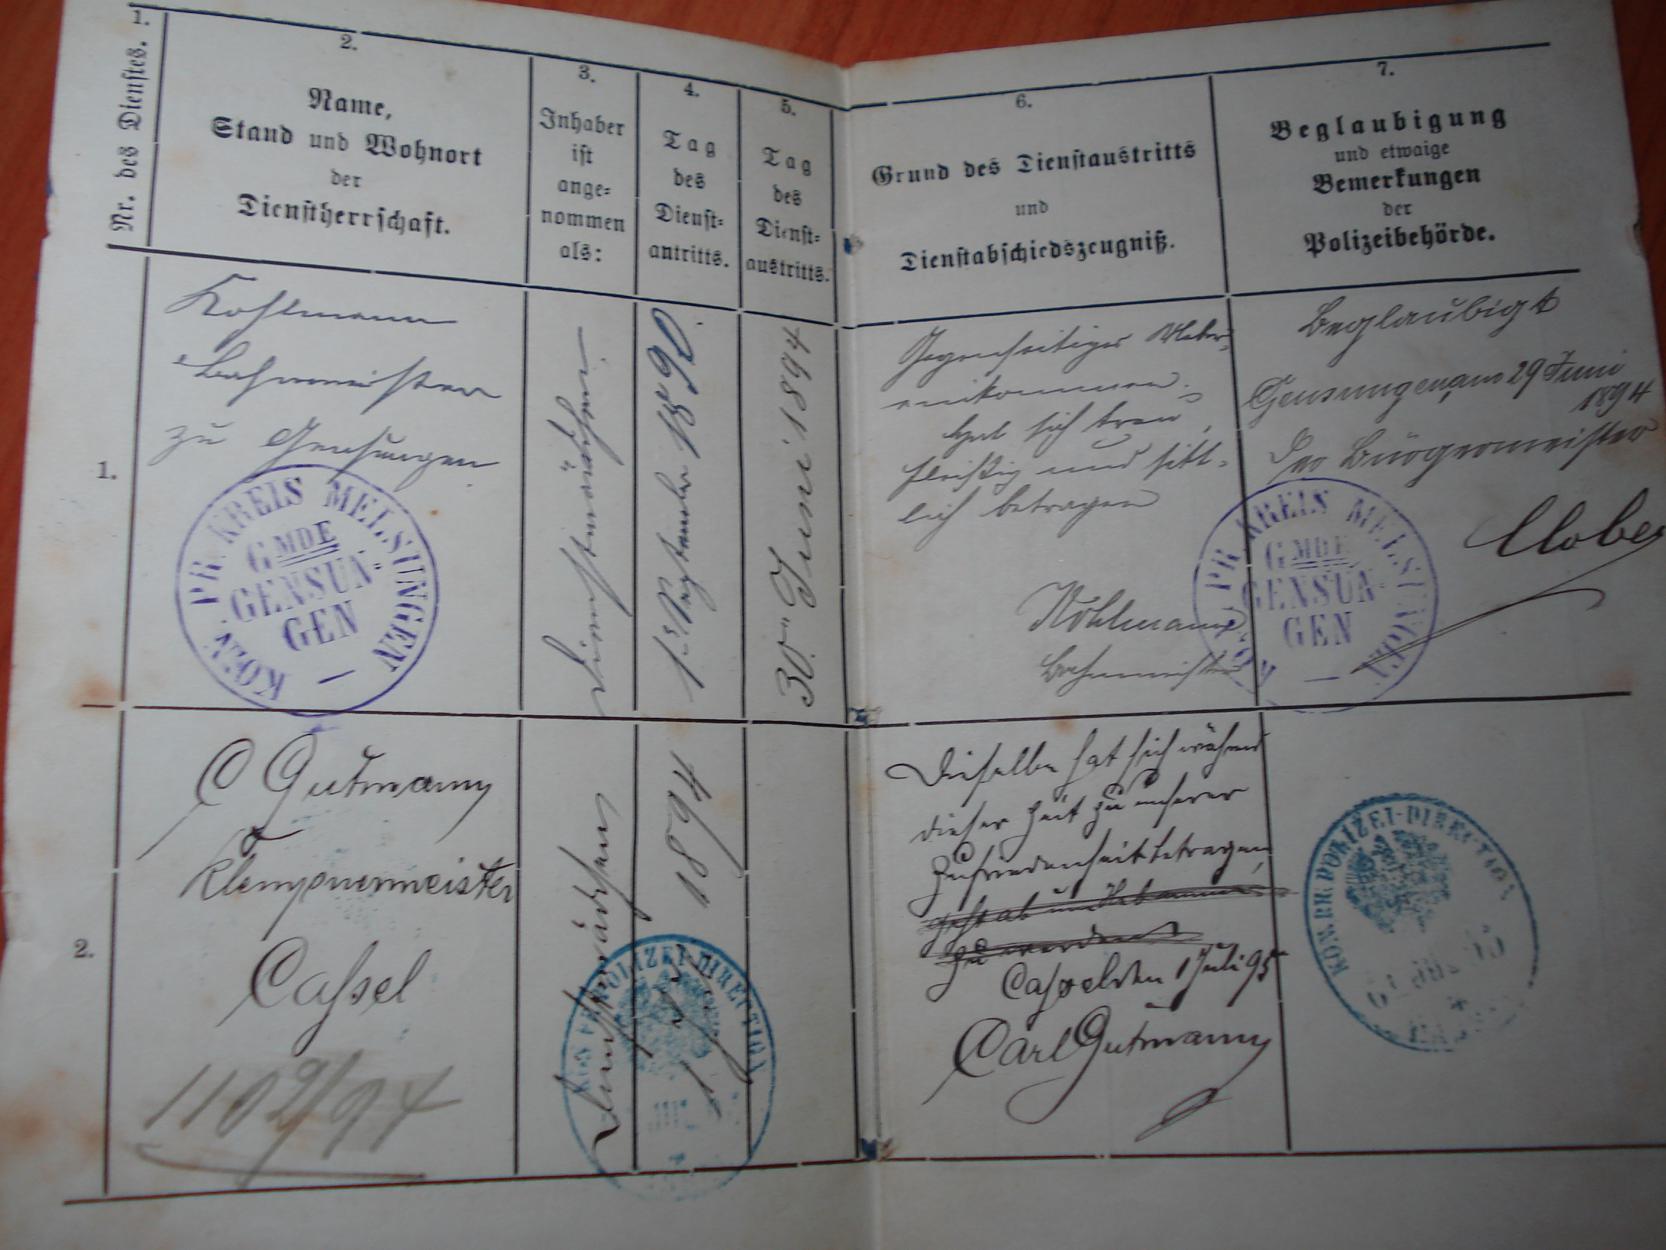 1.
Nr. des Dienstes.
2.
Name,
Stand und Wohnort
der
Dienstherrschaft.
3.
Inhaber
ist
ange-
nommen
als:
4.
Tag
des
Dienst-
antritts.
5.
Tag
des
Dienst-
austritts.
6.
Grund des Dienstaustritts
und
Dienstabschiedszeugniß.
7.
Beglaubigung
und etwaige
Bemerkungen
der
Polizeibehörde.
1.
Kohlmann
Bahnmeister
zu Gensungen
KÖN. PR. KREIS MELSUNGEN
GMDE
GENSUN-
GEN
Dienstmädchen.
1. September 1890.
30. Juni 1894
Gegenseitiges Ueber-
einkommen.
Hat sich treu,
fleißig und sitt-
lich betragen
Kohlmann
Bahnmeister
Beglaubigt
Gensungen am 29 Juni
1894
Der Bürgermeister
KÖN. PR. KREIS MELSUNGEN
GMDE
GENSUN-
GEN
2.
C Gutmann
Klempnermeister
Cassel
1102/94
Dienstmädchen
1894
POLIZEI-DIRECTION
Dieselbe hat sich während
dieser Zeit zu unserer
Zufriedenheit betragen
geht ab um
zu werden
Cassel den 1 Juli 95
Carl Gutmann
KÖN. PR. POLIZEI-DIRECTION